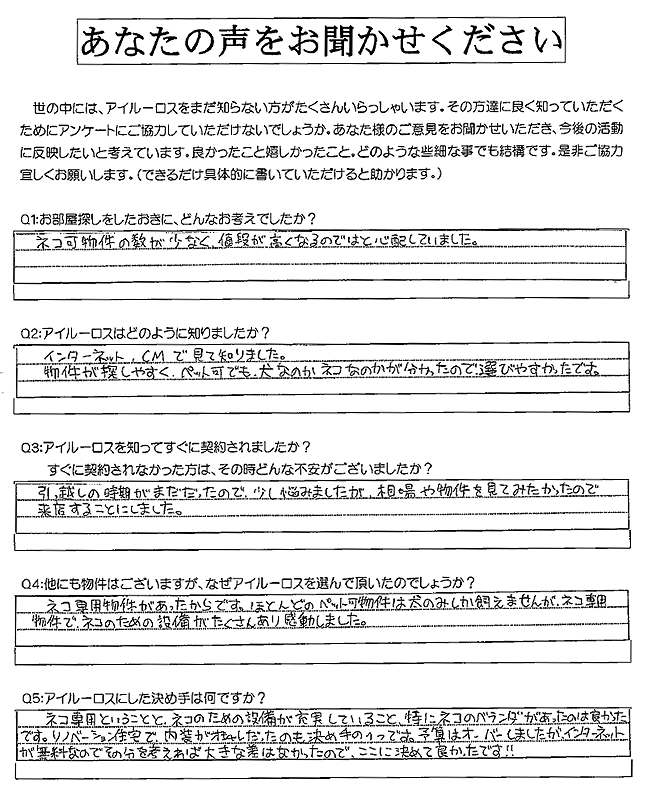 あなたの声をお聞かせください
世の中には、アイルーロスをまだ知らない方がたくさんいらっしゃいます。その方達に良く知っていただく
ためにアンケートにご協力していただけないでしょうか。あなた様のご意見をお聞かせいただき、今後の活動
に反映したいと考えています。良かったこと嬉しかったこと。どのような些細な事でも結構です。是非ご協力
宜しくお願いします。（できるだけ具体的に書いていただけると助かります。）
Q1:お部屋探しをしたおきに、どんなお考えでしたか？
ネコ可物件の数が少なく、値段が高くなるのではと心配していました。
Q2:アイルーロスはどのように知りましたか？
インターネット、CMで見て知りました。
物件が探しやすく、ペット可でも、犬なのかネコなのかが分かったので選びやすかったです。
Q3:アイルーロスを知ってすぐに契約されましたか？
すぐに契約されなかった方は、その時どんな不安がございましたか？
引っ越しの時期がまだだったので、少し悩みましたが、相場や物件を見てみたかったので
来店することにしました。
Q4:他にも物件はございますが、なぜアイルーロスを選んで頂いたのでしょうか？
ネコ専用物件があったからです。ほとんどのペット可物件は犬のみしか飼えませんが、ネコ専用
物件で、ネコのための設備がたくさんあり感動しました。
Q5:アイルーロスにした決め手は何ですか？
ネコ専用ということと、ネコのための設備が充実していること、特にネコのベランダがあったのは良かった
です。リノベーション住宅で、内装がオシャレだったのも決め手の1つです。予算はオーバーしましたが、インターネット
が無料なのでその分を考えれば大きな差はなかったので、ここに決めて良かったです!!